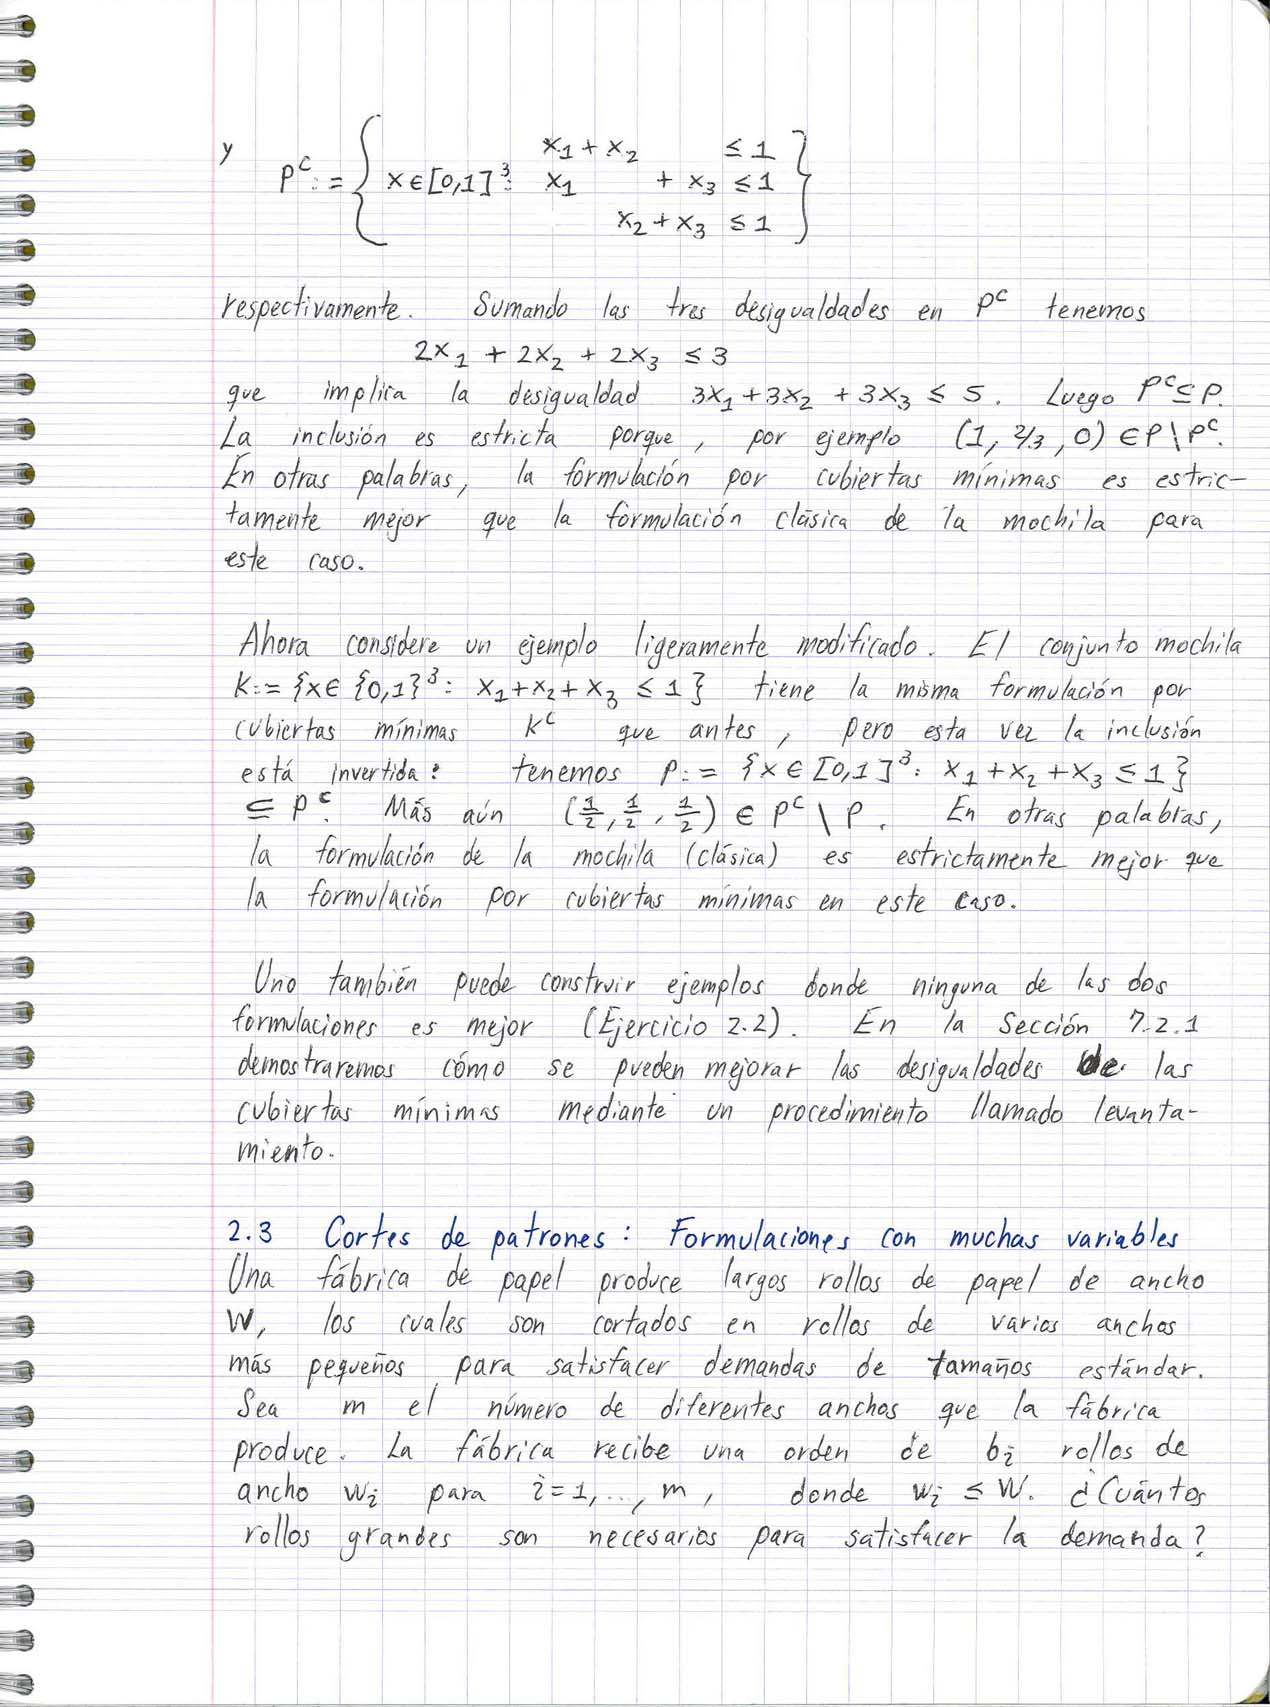 y
P^C := { x ∈ [0,1]^3 : x_1 + x_2 ≤ 1
x_1 + x_3 ≤ 1
x_2 + x_3 ≤ 1 }
respectivamente. Sumando las tres desigualdades en P^C tenemos
2x_1 + 2x_2 + 2x_3 ≤ 3
que implica la desigualdad 3x_1 + 3x_2 + 3x_3 ≤ 5. Luego P^C ⊆ P.
La inclusión es estricta porque, por ejemplo (1, 2/3, 0) ∈ P \ P^C.
En otras palabras, la formulación por cubiertas mínimas es estric-
tamente mejor que la formulación clásica de la mochila para
este caso.
Ahora considere un ejemplo ligeramente modificado. El conjunto mochila
K := {x ∈ {0,1}^3 : x_1 + x_2 + x_3 ≤ 1} tiene la misma formulación por
cubiertas mínimas K^C que antes, pero esta vez la inclusión
está invertida: tenemos P := {x ∈ [0,1]^3 : x_1 + x_2 + x_3 ≤ 1}
⊆ P^C. Más aún (1/2, 1/2, 1/2) ∈ P^C \ P. En otras palabras,
la formulación de la mochila (clásica) es estrictamente mejor que
la formulación por cubiertas mínimas en este caso.
Uno también puede construir ejemplos donde ninguna de las dos
formulaciones es mejor (Ejercicio 2.2). En la Sección 7.2.1
demostraremos cómo se pueden mejorar las desigualdades de las
cubiertas mínimas mediante un procedimiento llamado levanta-
miento.
2.3 Cortes de patrones: Formulaciones con muchas variables
Una fábrica de papel produce largos rollos de papel de ancho
W, los cuales son cortados en rollos de varios anchos
más pequeños para satisfacer demandas de tamaños estándar.
Sea m el número de diferentes anchos que la fábrica
produce. La fábrica recibe una orden de b_i rollos de
ancho w_i para i=1,...,m, donde w_i ≤ W. ¿Cuántos
rollos grandes son necesarios para satisfacer la demanda?